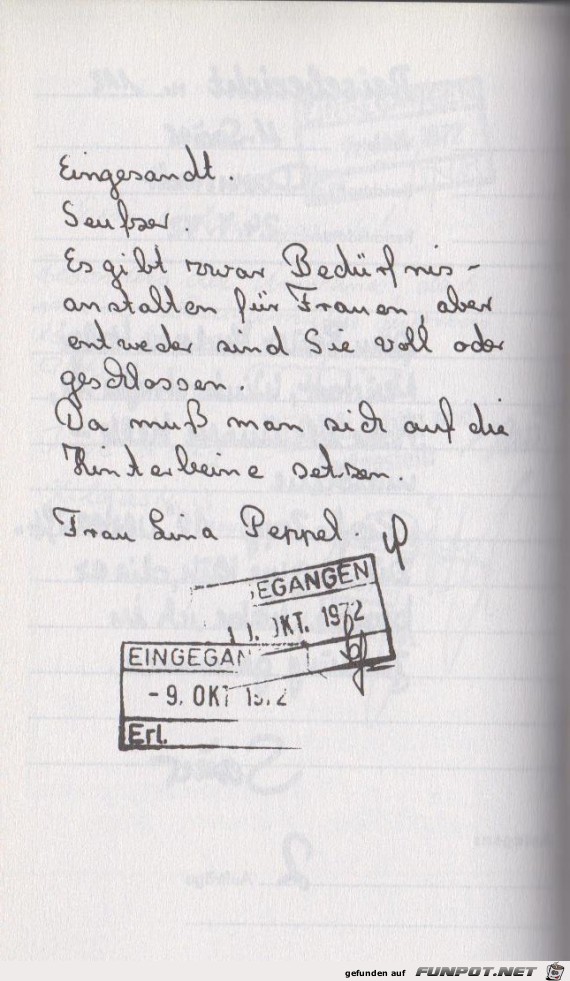 Eingesandt.
Seufzer.
Es gibt zwar Bedürfnis-
anstalten für Frauen, aber
entweder sind Sie voll oder
geschlossen.
Da muß man sich auf die
Hinterbeine setzen.
Frau Lina Peppel.
EGANGEN
OKT. 1972
EINGEGAN
- 9. OKT 1972
Erl.
gefunden auf FUNPOT.NET